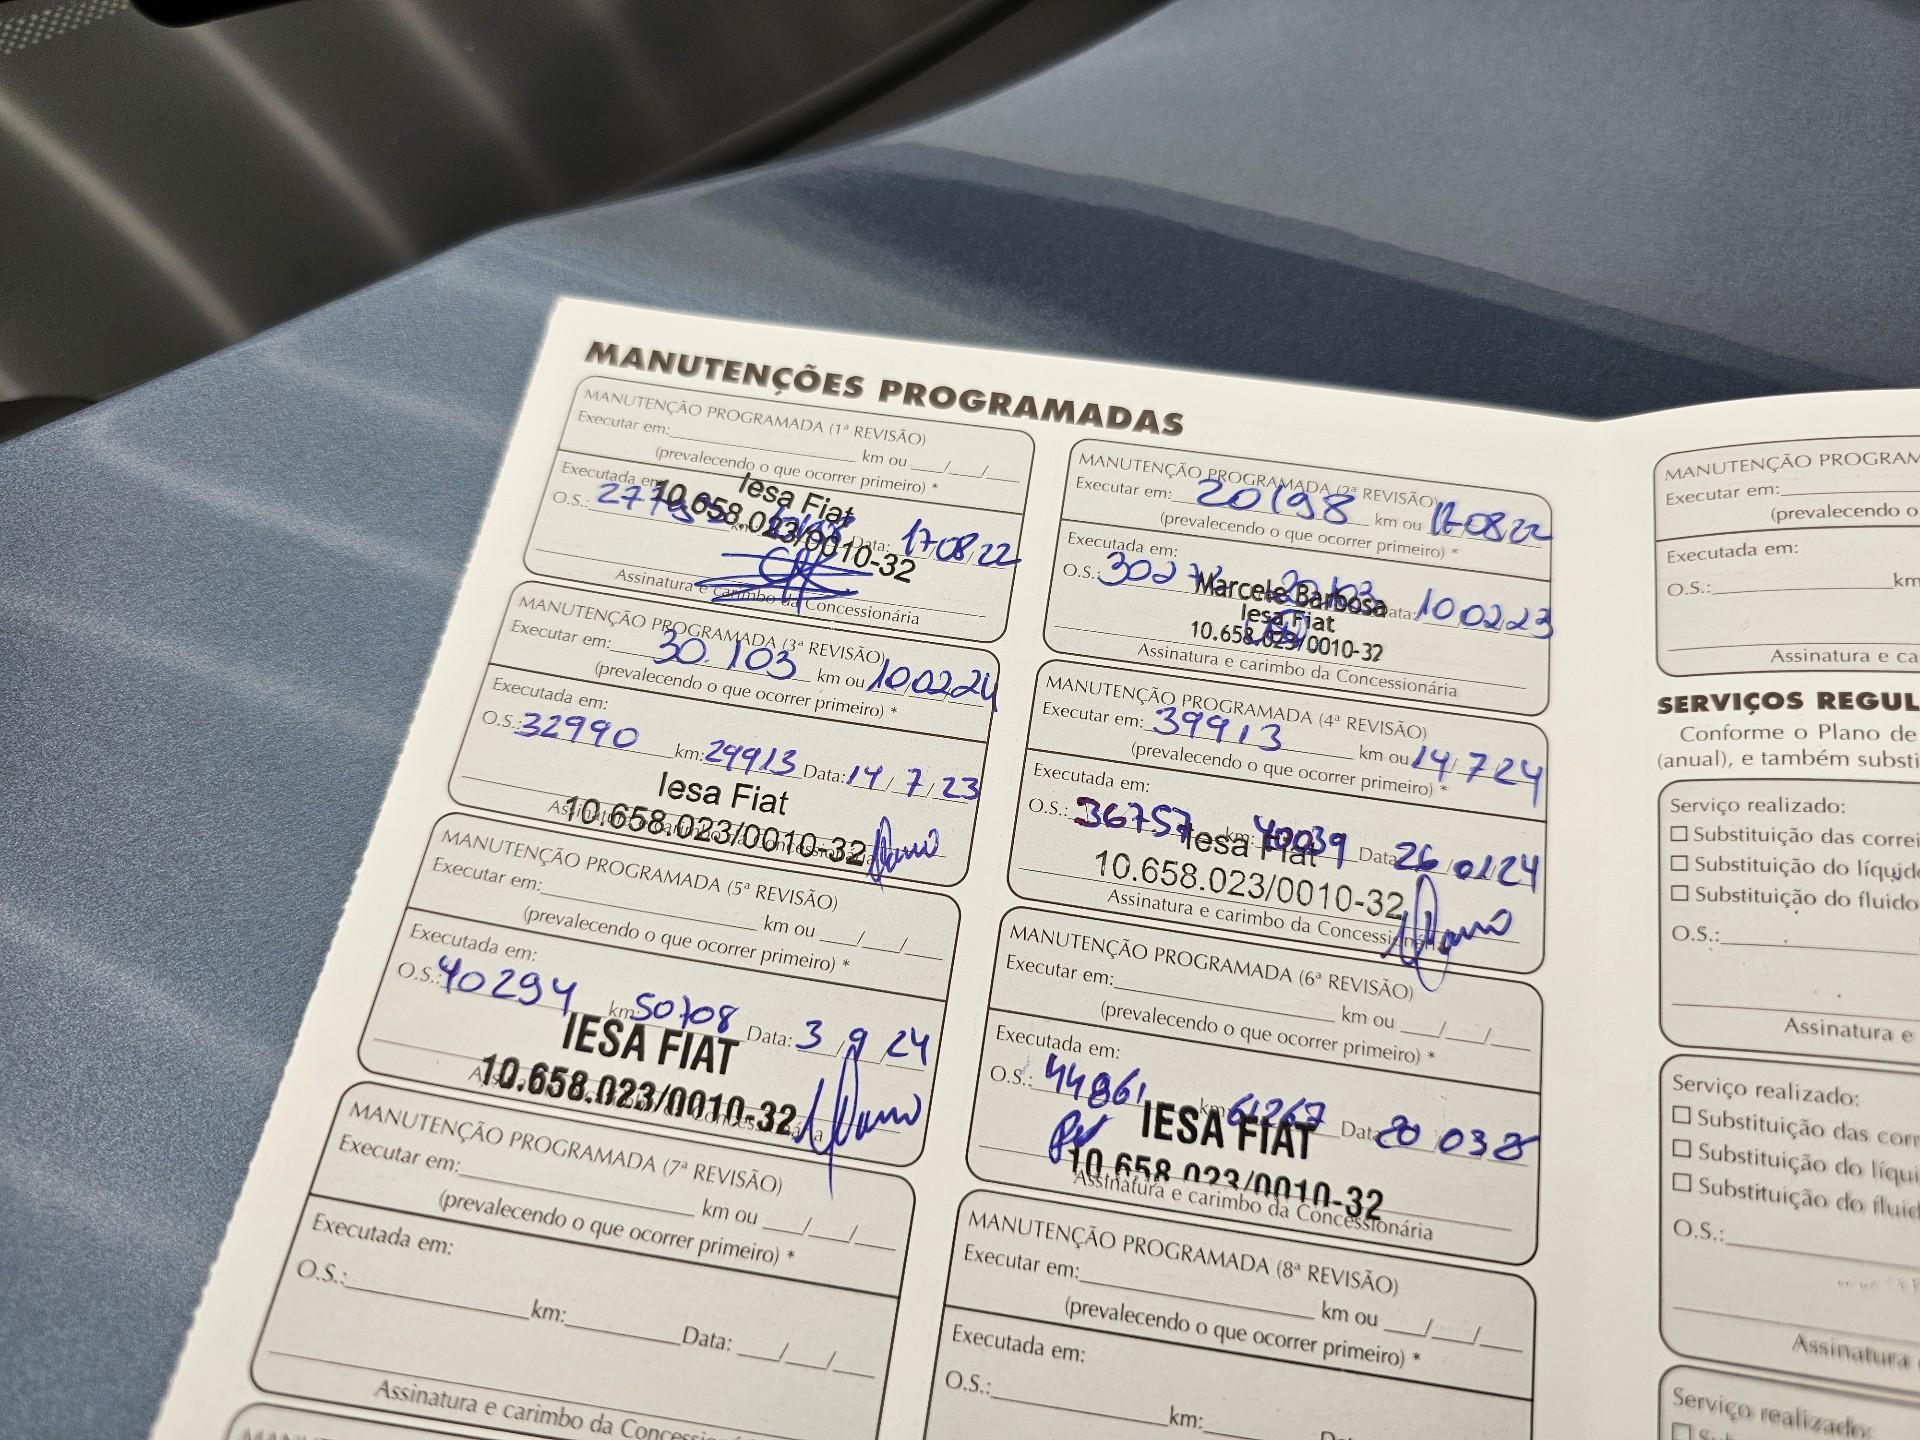 MANUTENÇÕES PROGRAMADAS
MANUTENÇÃO PROGRAMADA (1ª REVISÃO)
Executar em: km ou / /
(prevalecendo o que ocorrer primeiro) *
Executada em:
O.S.: Data: 17 08 22
Iesa Fiat
10.658.023/0010-32
Assinatura e carimbo da Concessionária
MANUTENÇÃO PROGRAMADA (2ª REVISÃO)
Executar em: 20198 km ou 17 08 22
(prevalecendo o que ocorrer primeiro) *
Executada em:
O.S.: Data: 10 02 23
Marcele Barbosa
Iesa Fiat
10.658.023/0010-32
Assinatura e carimbo da Concessionária
MANUTENÇÃO PROGRAMADA (3ª REVISÃO)
Executar em: 30.103 km ou 10 02 24
(prevalecendo o que ocorrer primeiro) *
Executada em:
O.S.: 32990 km: 29913 Data: 14 / 7 / 23
Iesa Fiat
10.658.023/0010-32
Assinatura e carimbo da Concessionária
MANUTENÇÃO PROGRAMADA (4ª REVISÃO)
Executar em: 39913 km ou 14 / 7 24
(prevalecendo o que ocorrer primeiro) *
Executada em:
O.S.: 36757 km: 40039 Data: 26 / 01 / 24
Iesa Fiat
10.658.023/0010-32
Assinatura e carimbo da Concessionária
MANUTENÇÃO PROGRAMADA (5ª REVISÃO)
Executar em: km ou / /
(prevalecendo o que ocorrer primeiro) *
Executada em:
O.S.: 40294 km: 50708 Data: 3 / 9 / 24
IESA FIAT
10.658.023/0010-32
Assinatura e carimbo da Concessionária
MANUTENÇÃO PROGRAMADA (6ª REVISÃO)
Executar em: km ou / /
(prevalecendo o que ocorrer primeiro) *
Executada em:
O.S.: 44861 km: 61267 Data: 20 03
IESA FIAT
10.658.023/0010-32
Assinatura e carimbo da Concessionária
MANUTENÇÃO PROGRAMADA (7ª REVISÃO)
Executar em: km ou / /
(prevalecendo o que ocorrer primeiro) *
Executada em:
O.S.: km: Data: / /
Assinatura e carimbo da Concess
MANUTENÇÃO PROGRAMADA (8ª REVISÃO)
Executar em: km ou / /
(prevalecendo o que ocorrer primeiro) *
Executada em:
O.S.: km:
MANUTENÇÃO PROGRAM
Executar em:
(prevalecendo o
Executada em:
O.S.: km
Assinatura e ca
SERVIÇOS REGUL
Conforme o Plano de
(anual), e também substi
Serviço realizado:
☐ Substituição das correi
☐ Substituição do líquido
☐ Substituição do fluido
O.S.:
Assinatura e
Serviço realizado:
☐ Substituição das corr
☐ Substituição do líqui
☐ Substituição do fluid
O.S.:
Assinatura
Serviço realizado: